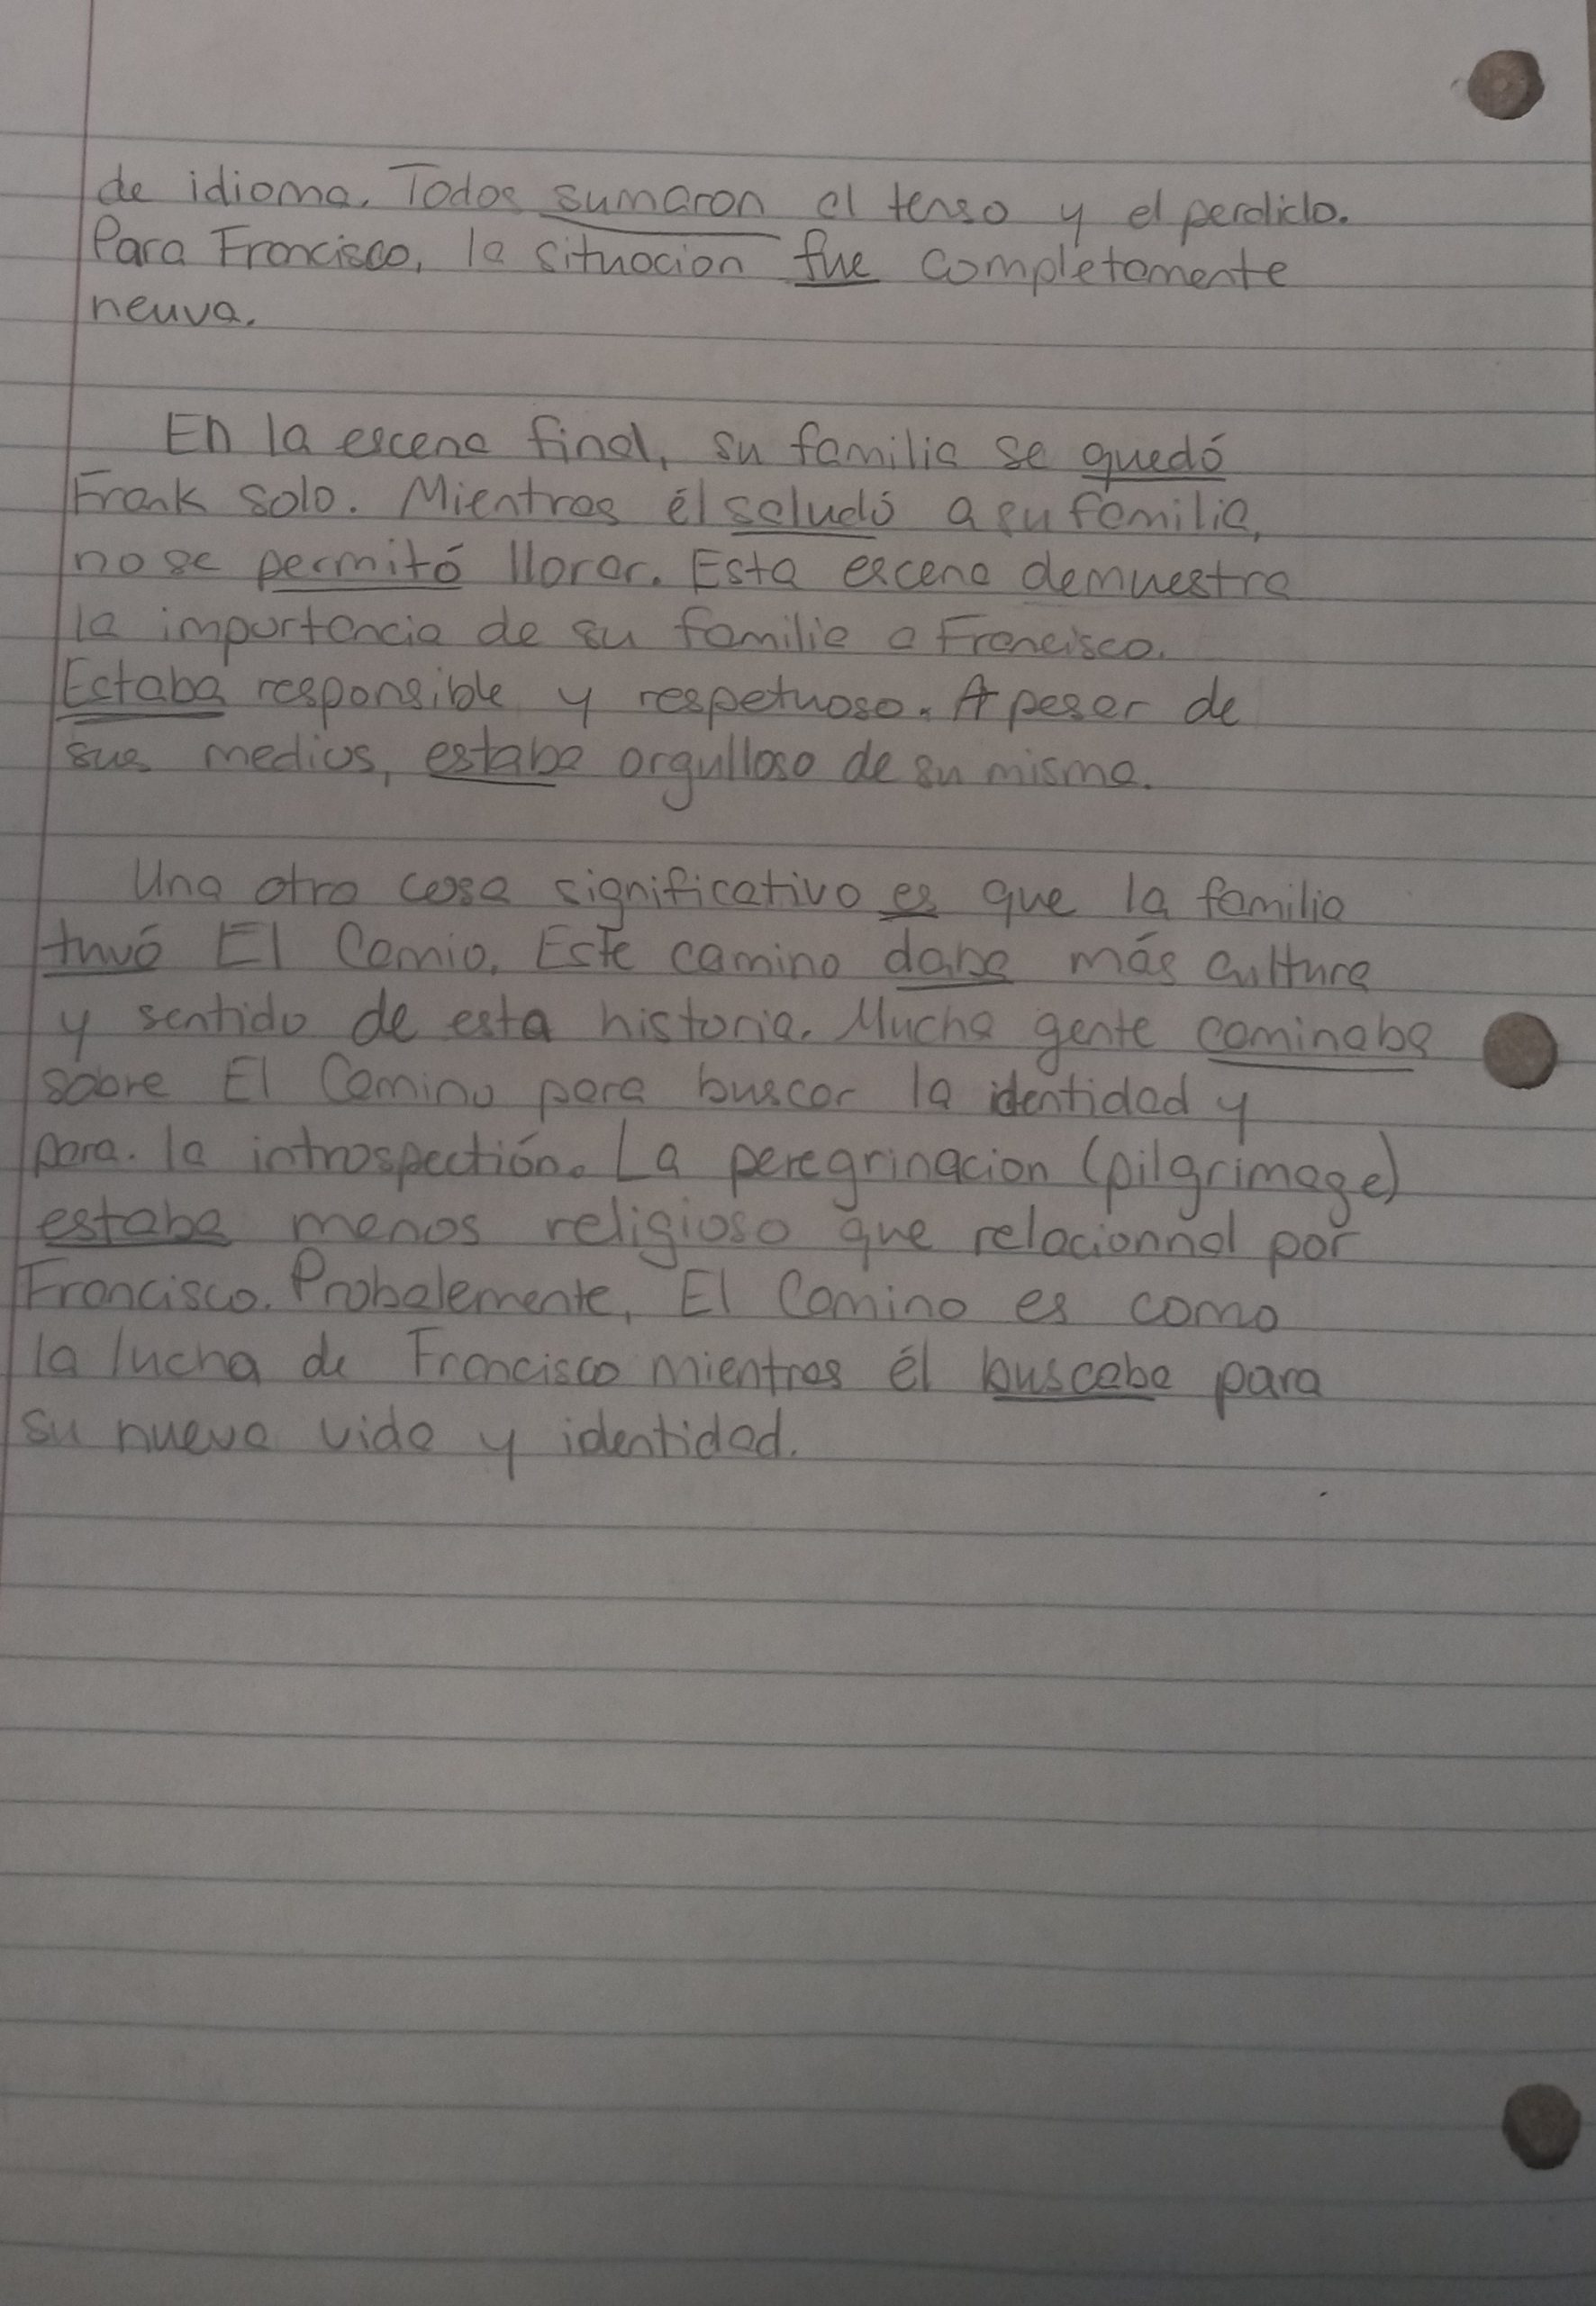 de idioma. Todos sumaron al tenso y el perdido.
Para Francisco, la situacion fue completamente
neuva.
En la escena final, su familia se quedó
Frank solo. Mientras él saludó a su familia,
no se permitó llorar. Esta escena demuestra
la importancia de su familia a Francisco.
Estaba responsible y respetuoso. A pesar de
sus medios, estaba orgulloso de su misma.
Una otra cosa significativo es que la familia
tuvó El Camio. Este camino daba más cultura
y sentido de esta historia. Mucha gente caminaba
sobre El Camino para buscar la identidad y
para. la introspectión. La peregrinacion (pilgrimage)
estaba menos religioso que relacionnal por
Francisco. Probalemente, El Camino es como
la lucha de Francisco mientras él buscaba para
su nueva vida y identidad.